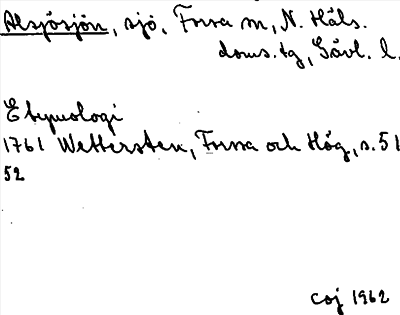 Alsjösjön, sjö, Forsa sn, N. Häls.
doms. tg, Gävl. l.
Etymologi
1761 Wettersten, Forssa och Hög, s. 51
52
CGJ 1962